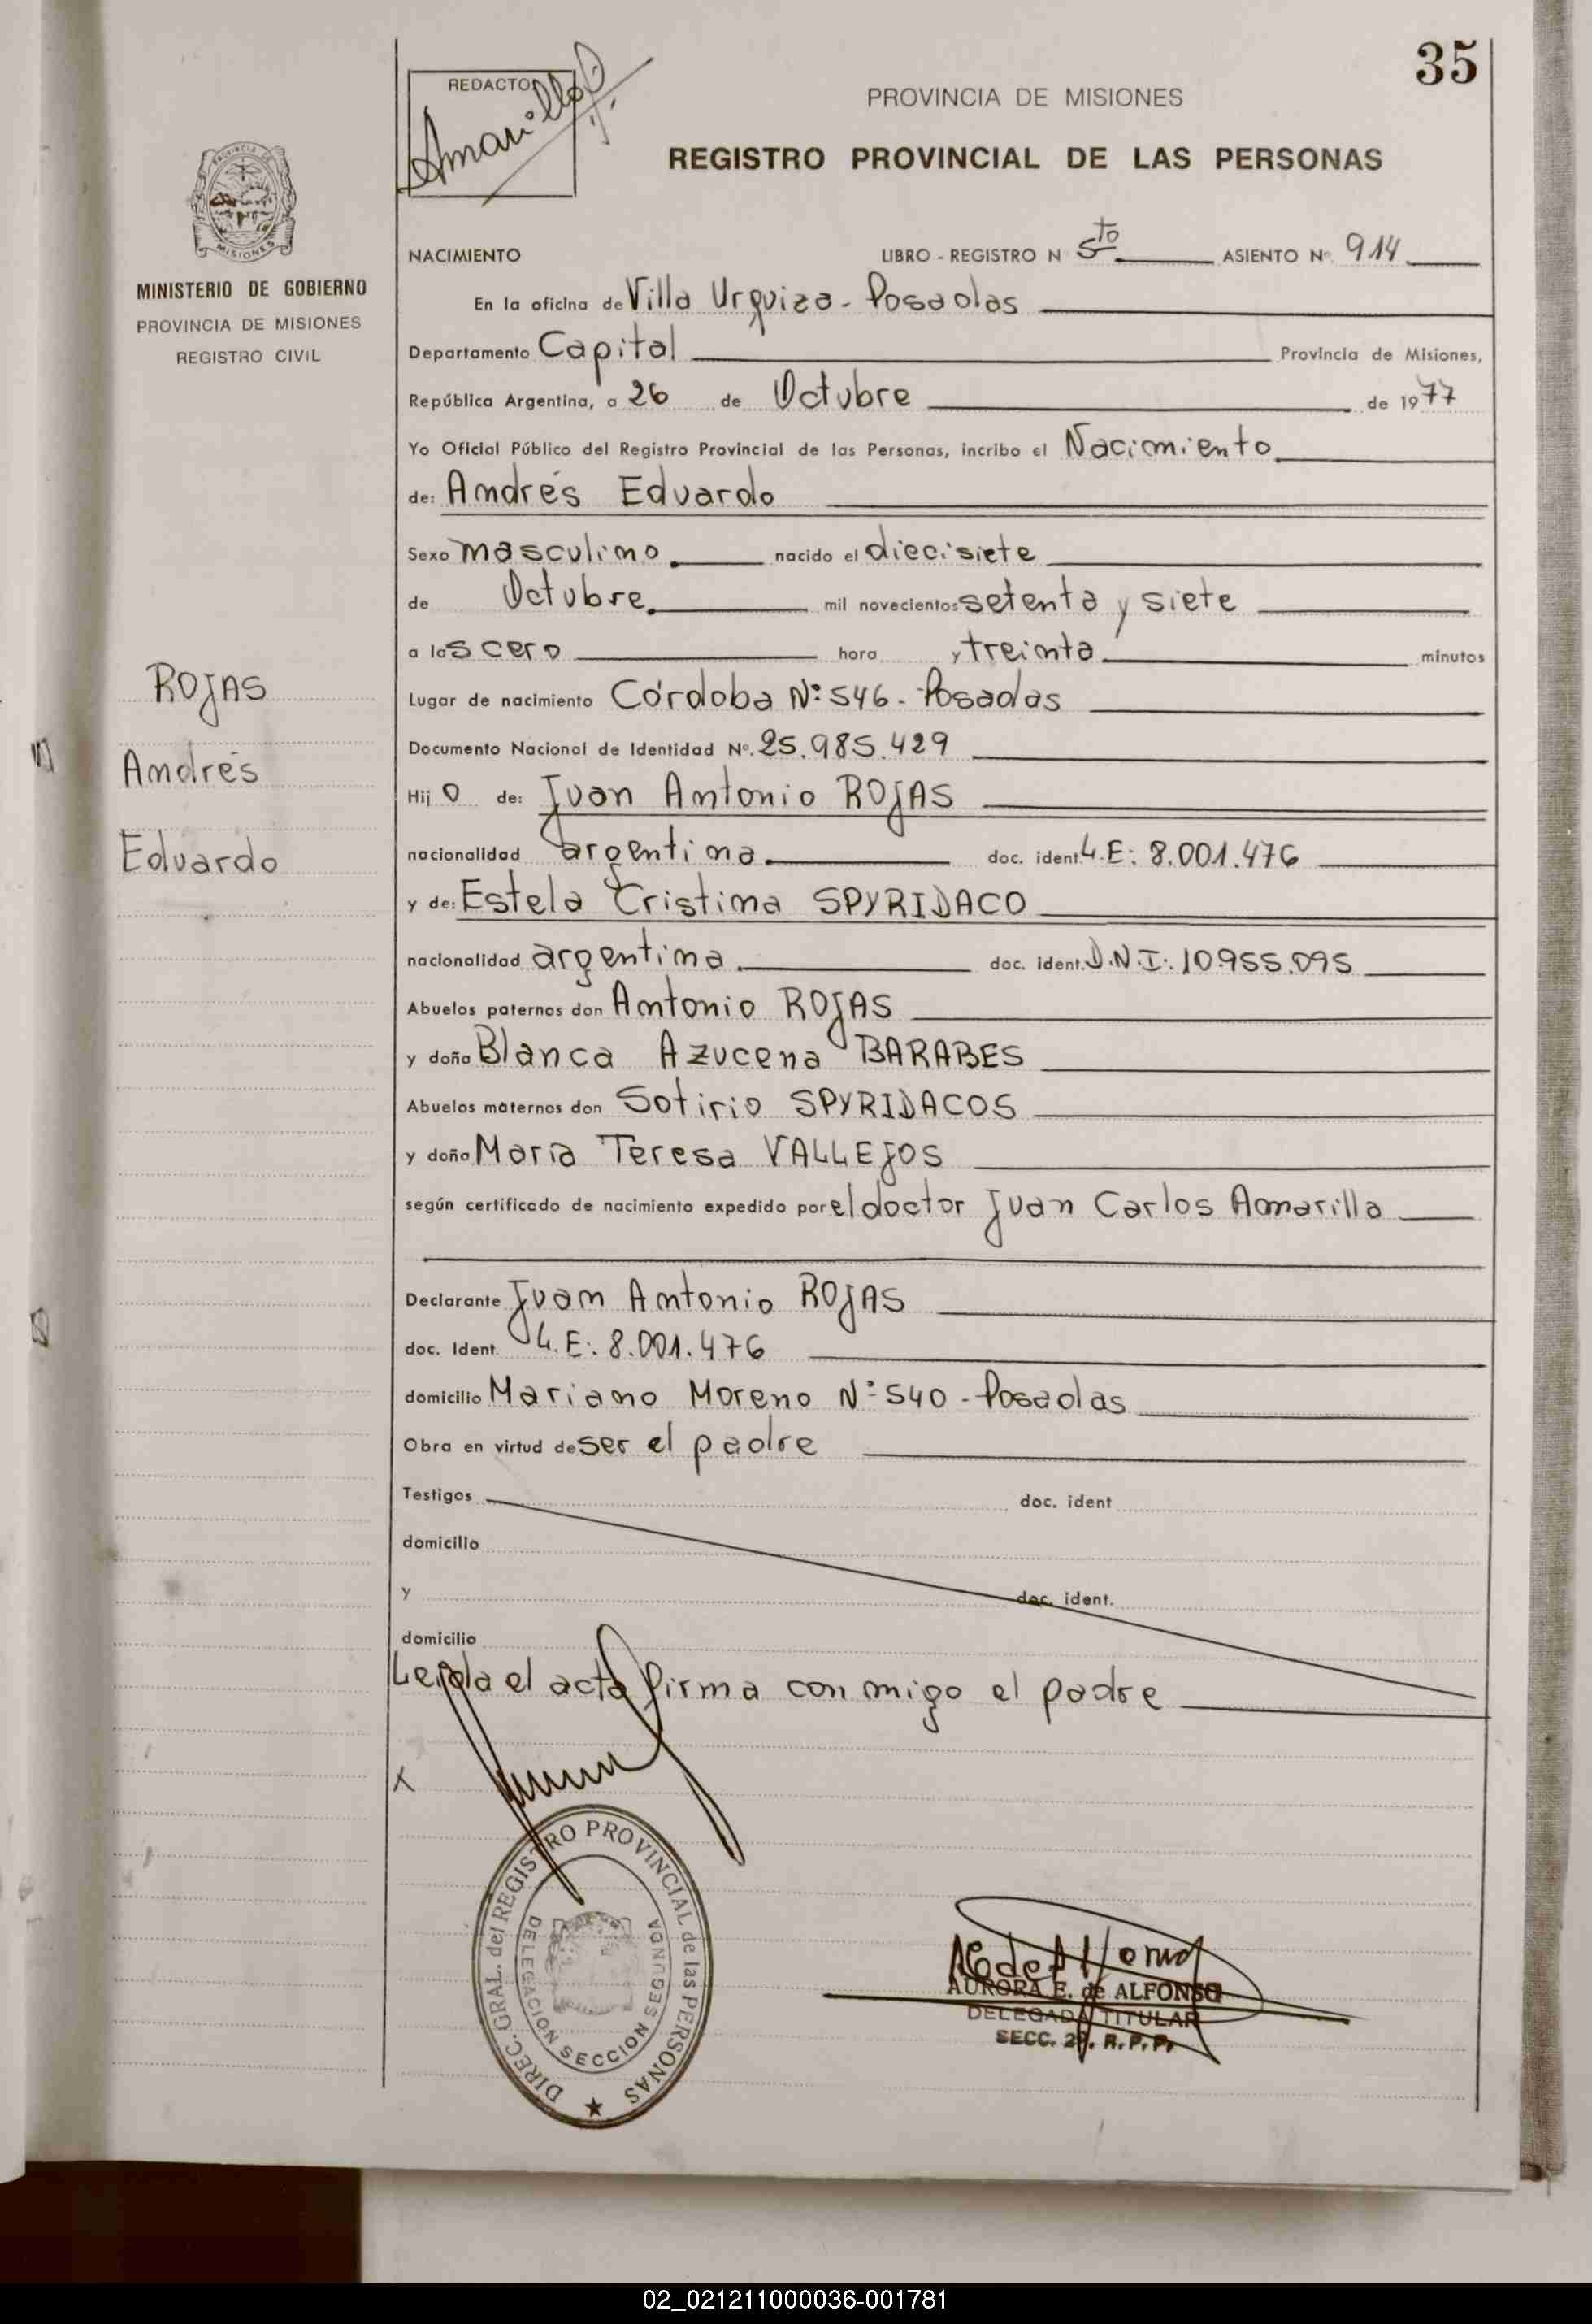 35
REDACTOR
Amarillo
PROVINCIA DE MISIONES
REGISTRO PROVINCIAL DE LAS PERSONAS
MISIONES
MINISTERIO DE GOBIERNO
PROVINCIA DE MISIONES
REGISTRO CIVIL
NACIMIENTO LIBRO - REGISTRO N 5to ASIENTO Nº 914
En la oficina de Villa Urquiza - Posadas
Departamento Capital Provincia de Misiones,
República Argentina, a 26 de Octubre de 1977
Yo Oficial Público del Registro Provincial de las Personas, incribo el Nacimiento
de: Andrés Eduardo
Sexo masculino nacido el diecisiete
de Octubre mil novecientos setenta y siete
a las cero hora y treinta minutos
ROJAS
Lugar de nacimiento Córdoba Nº 546 - Posadas
Documento Nacional de Identidad Nº. 25.985.429
Andrés
Hijo de: Juan Antonio ROJAS
Eduardo
nacionalidad argentina doc. ident. L.E: 8.001.476
y de: Estela Cristina SPYRIDACO
nacionalidad argentina doc. ident. D.N.I: 10.955.095
Abuelos paternos don Antonio ROJAS
y doña Blanca Azucena BARABES
Abuelos maternos don Sotirio SPYRIDACOS
y doña María Teresa VALLEJOS
según certificado de nacimiento expedido por el doctor Juan Carlos Amarilla
Declarante Juan Antonio ROJAS
doc. Ident. L.E: 8.001.476
domicilio Mariano Moreno Nº 540 - Posadas
Obra en virtud de ser el padre
Testigos doc. ident
domicilio
y doc. ident.
domicilio
Leida el acta firma conmigo el padre
x
DIREC. GRAL. del REGISTRO PROVINCIAL de las PERSONAS
DELEGACION SECCION SEGUNDA
AURORA E. de ALFONSO
DELEGADA TITULAR
SECC. 2ª. R.P.P.
02_021211000036-001781